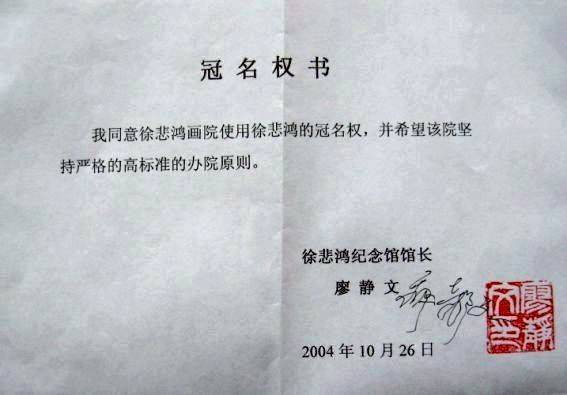 冠名权书
我同意徐悲鸿画院使用徐悲鸿的冠名权，并希望该院坚
持严格的高标准的办院原则。
徐悲鸿纪念馆馆长
廖静文
廖静文
2004年10月26日
廖静文印